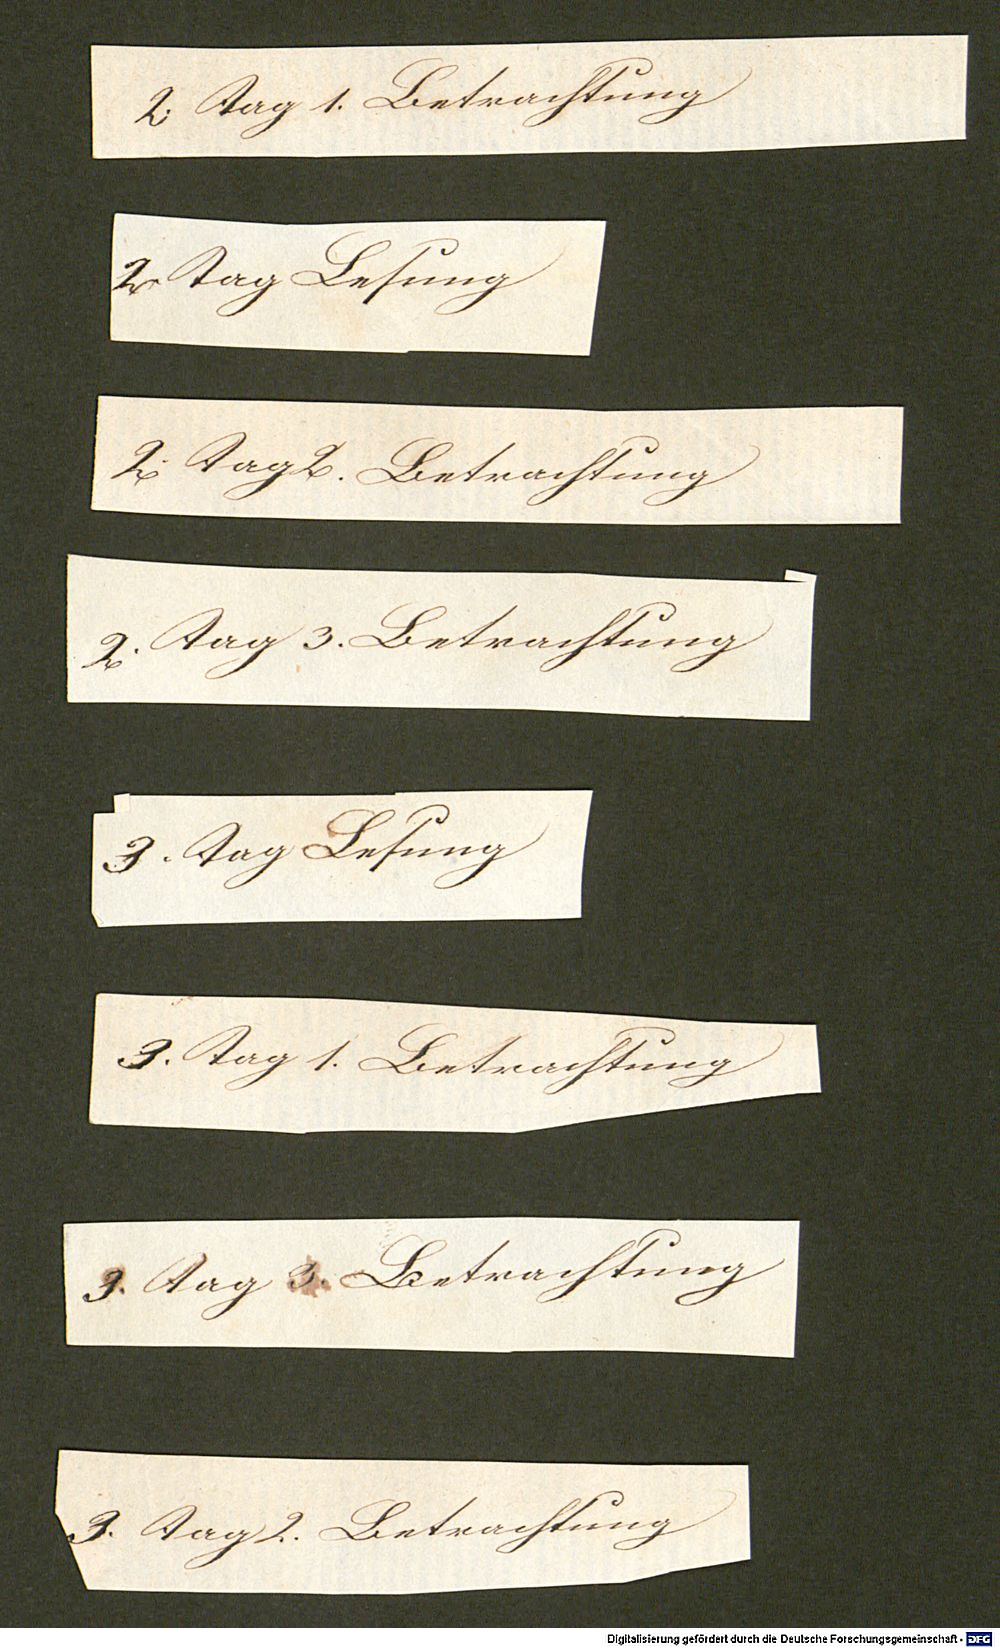 2. Tag 1. Betrachtung
2. Tag Lesung
2. Tag 2. Betrachtung
2. Tag 3. Betrachtung
3. Tag Lesung
3. Tag 1. Betrachtung
3. Tag 3. Betrachtung
3. Tag 2. Betrachtung
Digitalisierung gefördert durch die Deutsche Forschungsgemeinschaft - DFG